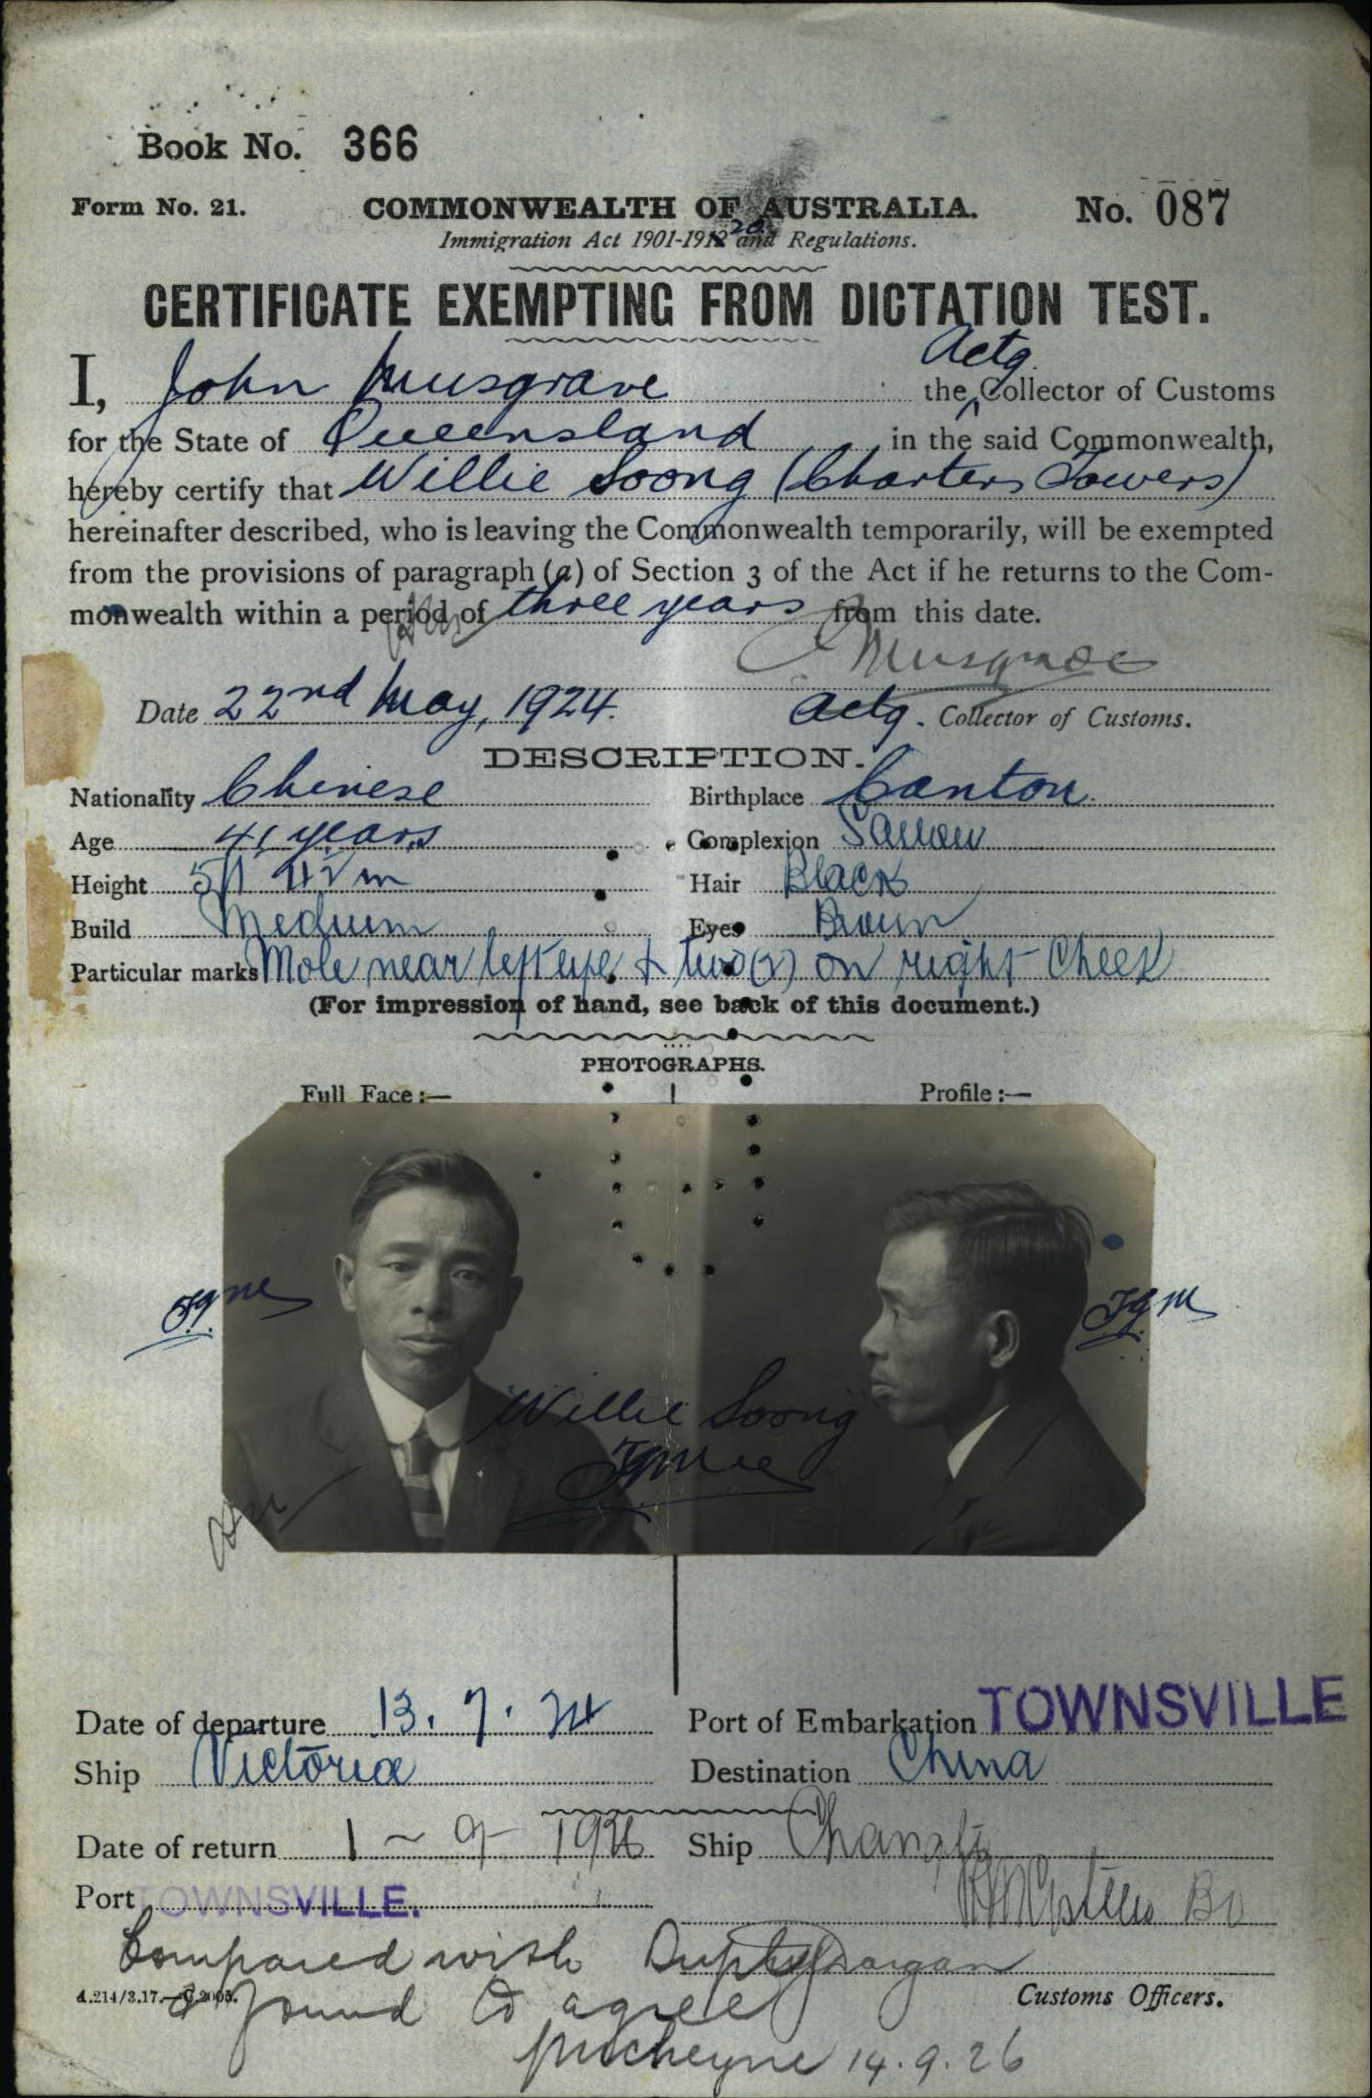 Book No. 366
Form No. 21.
COMMONWEALTH OF AUSTRALIA.
No. 087
Immigration Act 1901-1912 20 and Regulations.
CERTIFICATE EXEMPTING FROM DICTATION TEST.
Actg.
I, John Musgrave the Collector of Customs
for the State of Queensland in the said Commonwealth,
hereby certify that Willie Soong (Charters Towers)
hereinafter described, who is leaving the Commonwealth temporarily, will be exempted
from the provisions of paragraph (a) of Section 3 of the Act if he returns to the Com-
monwealth within a period of three years from this date.
Musgrave
Date 22nd May, 1924. Actg. Collector of Customs.
DESCRIPTION.
Nationality Chinese Birthplace Canton.
Age 41 years Complexion Sallow
Height 5ft Hair Black
Build Medium Eyes Brown
Particular marks Mole near left eye & two (2) on right Cheek
(For impression of hand, see back of this document.)
PHOTOGRAPHS.
Full Face :— Profile :—
Willie Soong
Date of departure 13. 7. 24 Port of Embarkation TOWNSVILLE
Ship Victoria Destination China
Date of return 1 – 9 – 1926 Ship
Port TOWNSVILLE.
Compared with
& found to agree
Customs Officers.
14.9.26